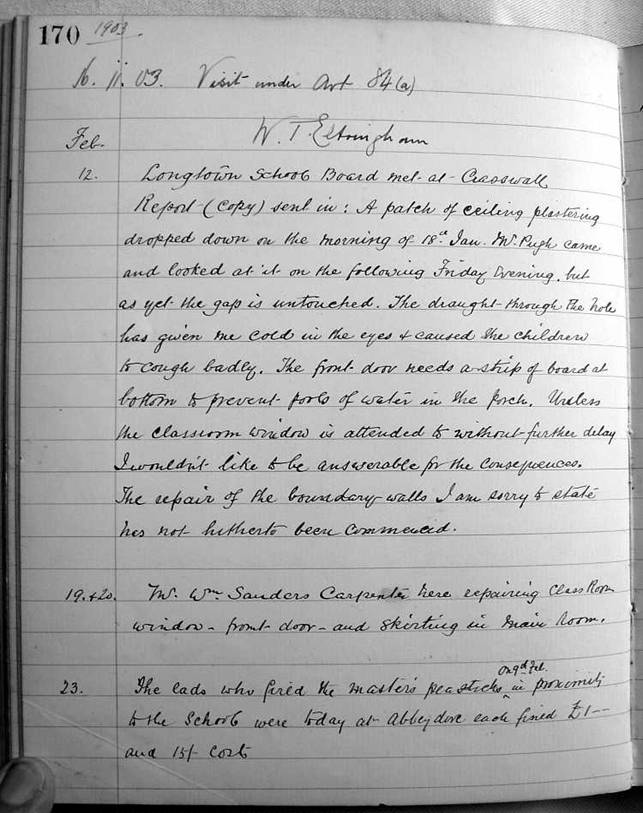 170 1903.
16. 11. 03. Visit under Art 84(a)
W. T. Eltringham
Feb.
12. Longtown School Board met at Craswall
Report (copy) sent in: A patch of ceiling plastering
dropped down on the morning of 18th Jan. Mr. Pugh came
and looked at it on the following Friday Evening, but
as yet the gap is untouched. The draught through the hole
has given me cold in the eyes & caused the children
to cough badly. The front door needs a strip of board at
bottom to prevent pools of water in the Porch. Unless
the classroom window is attended to without further delay
I wouldn't like to be answerable for the consequences.
The repair of the boundary walls I am sorry to state
has not hitherto been commenced.
19. & 20. Mr. Wm Sanders Carpenter here repairing Class Room
window - front door - and skirting in Main Room.
on 9th Feb.
23. The lads who fired the master's peasticks in proximity
to the School were today at Abbeydore each fined £1--
and 15/- costs